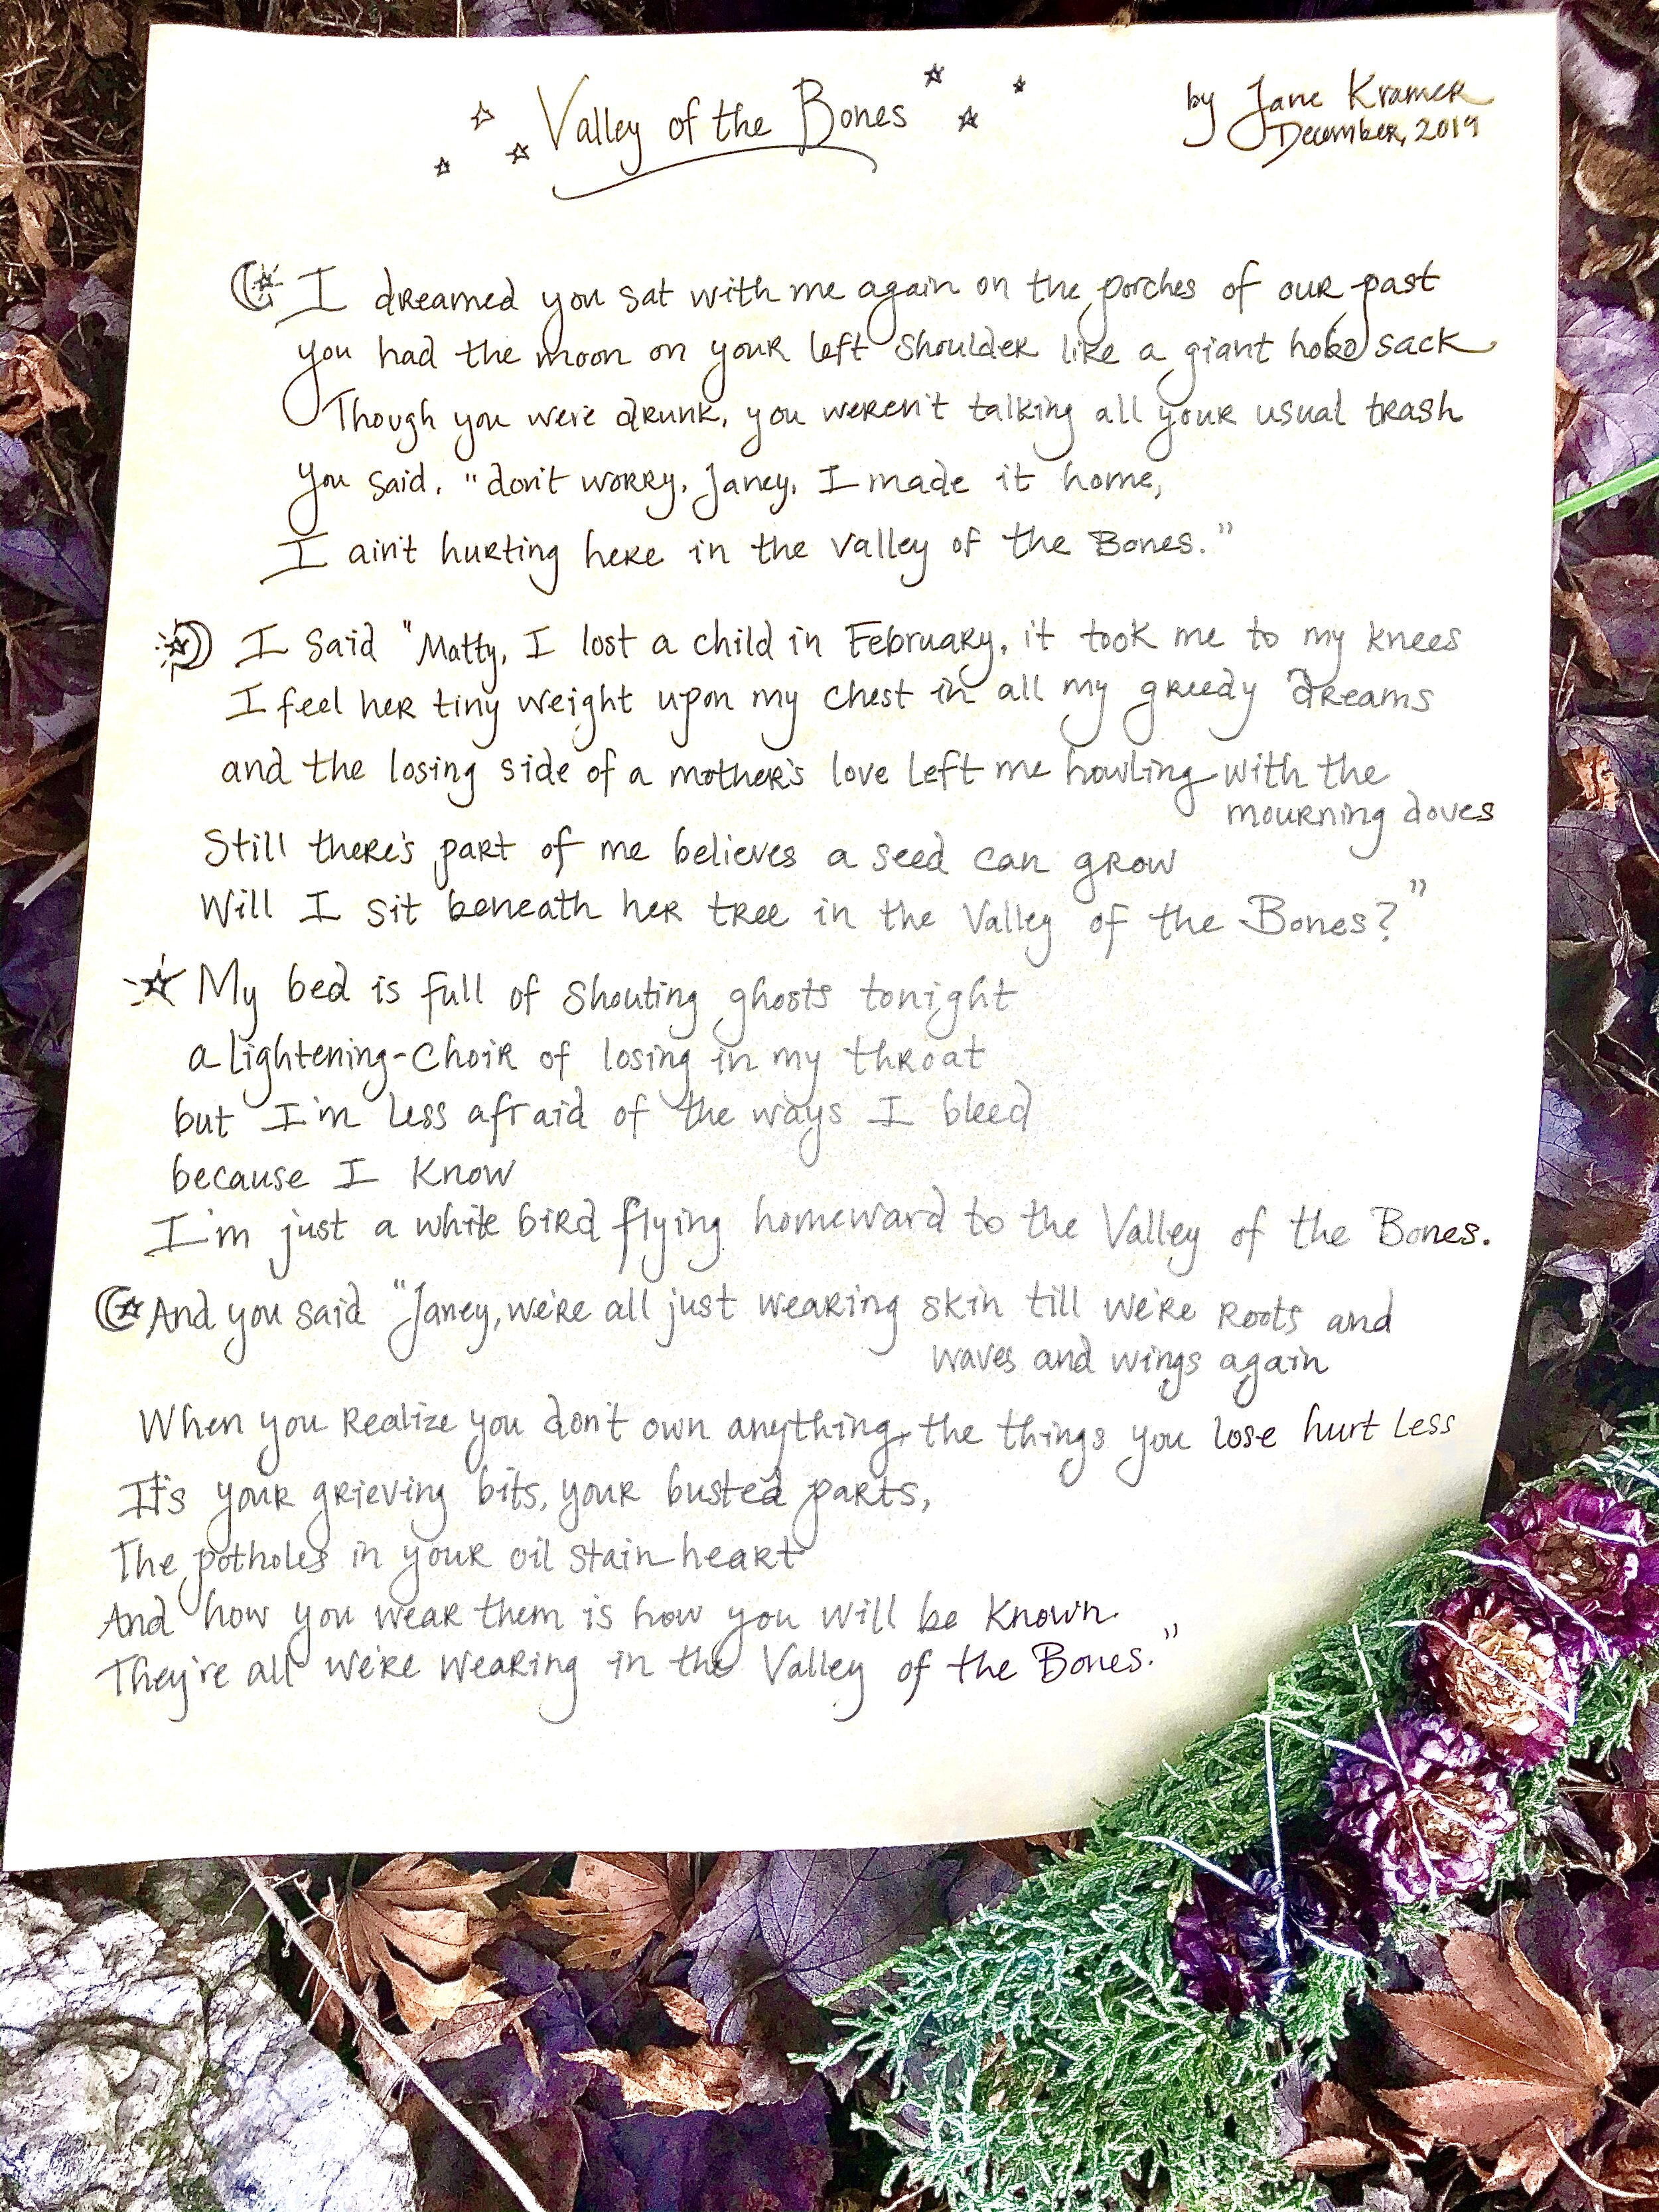 Valley of the Bones
by Jane Kramer
December, 2019
I dreamed you sat with me again on the porches of our past
you had the moon on your left shoulder like a giant hobo sack
Though you were drunk, you weren't talking all your usual trash
you said, "don't worry, Janey, I made it home,
I ain't hurting here in the Valley of the Bones."
I said "Matty, I lost a child in February, it took me to my knees
I feel her tiny weight upon my chest in all my greedy dreams
and the losing side of a mother's love left me howling with the
mourning doves
Still there's part of me believes a seed can grow
Will I sit beneath her tree in the Valley of the Bones?"
My bed is full of shouting ghosts tonight
a lightening-choir of losing in my throat
but I'm less afraid of the ways I bleed
because I know
I'm just a white bird flying homeward to the Valley of the Bones.
And you said "Janey, we're all just wearing skin till we're roots and
waves and wings again
When you realize you don't own anything, the things you lose hurt less
It's your grieving bits, your busted parts,
The potholes in your oil stain heart
And how you wear them is how you will be known.
They're all we're wearing in the Valley of the Bones."